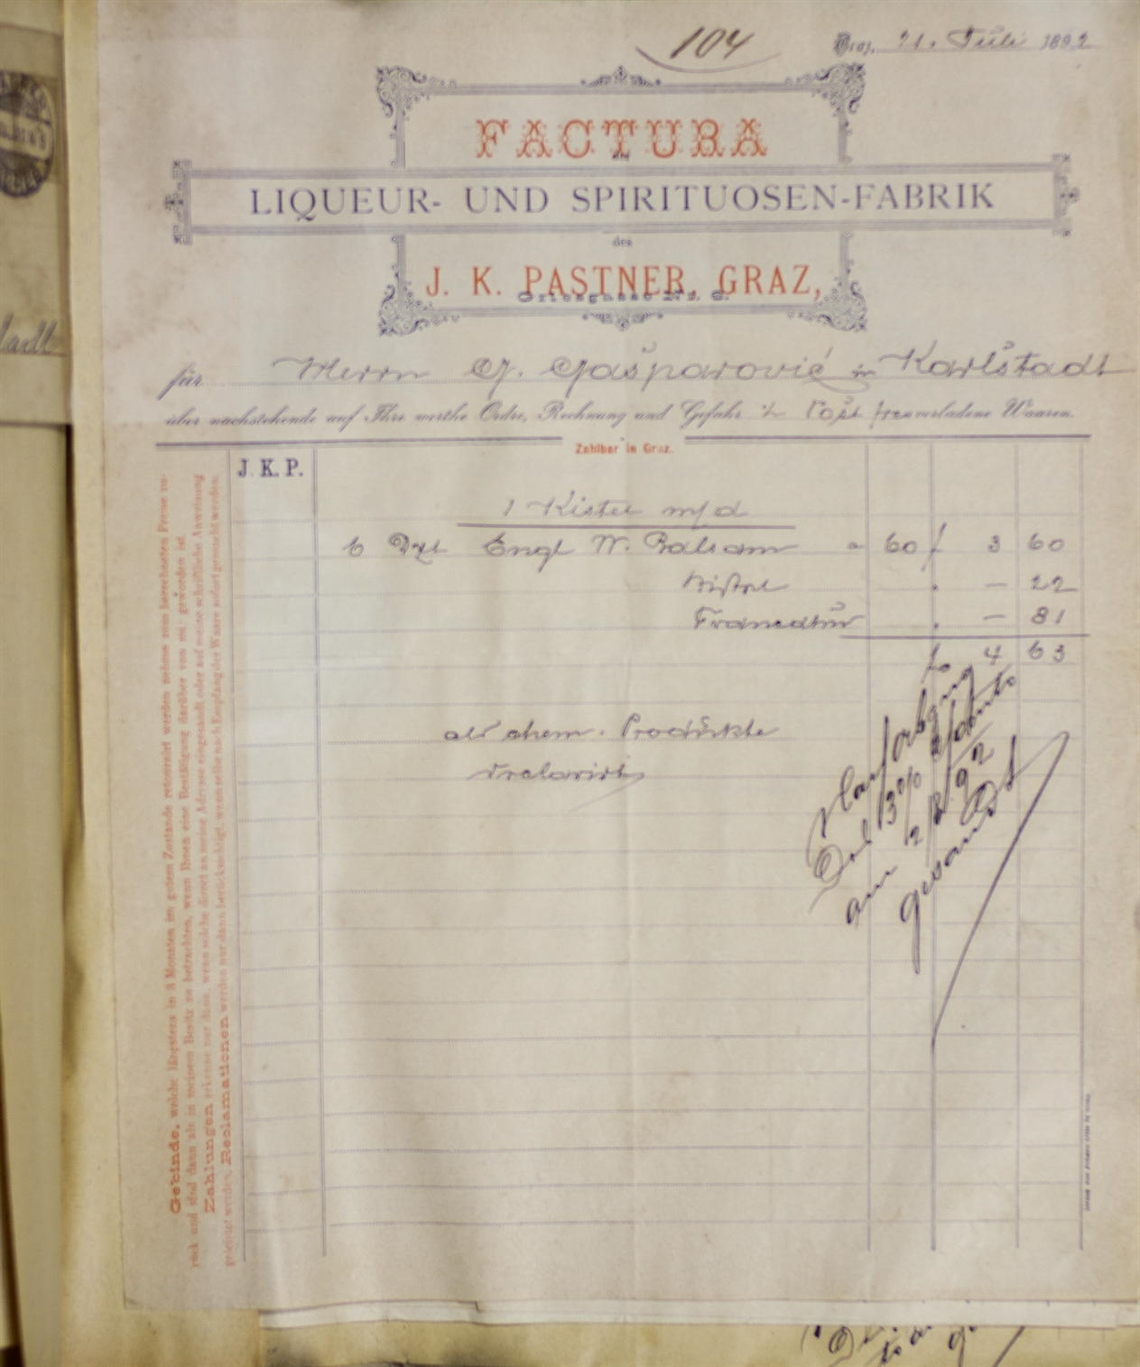 104
Graz, 21. Juli 1892
FACTURA
der
LIQUEUR- UND SPIRITUOSEN-FABRIK
des
J. K. PASTNER, GRAZ,
für Herrn G. Gašparović in Karlstadt
über nachstehende auf Ihre werthe Ordre, Rechnung und Gefahr Post free verladene Waaren.
Zahlbar in Graz.
J. K. P.
1 Kistel m/d
6 Dzt Engl W. Balsam a 60 f 3 60
Kistel . — 22
Francatur . — 81
fo 4 63
als chem. Produkte
declarirt
am 2/8 92
gesandt
Gebinde, welche längstens in 3 Monaten im guten Zustande retournirt werden nehme zum berechneten Preise zu-
rück und sind dann als in meinem Besitz zu betrachten, wenn Ihnen eine Bestätigung darüber von mir geworden ist.
Zahlungen erkenne nur dann, wenn solche direct an meine Adresse eingesandt oder auf meine schriftliche Anweisung
geleistet werden. Reclamationen werden nur dann berücksichtigt, wenn selbe nach Empfang der Waare sofort gemacht werden.